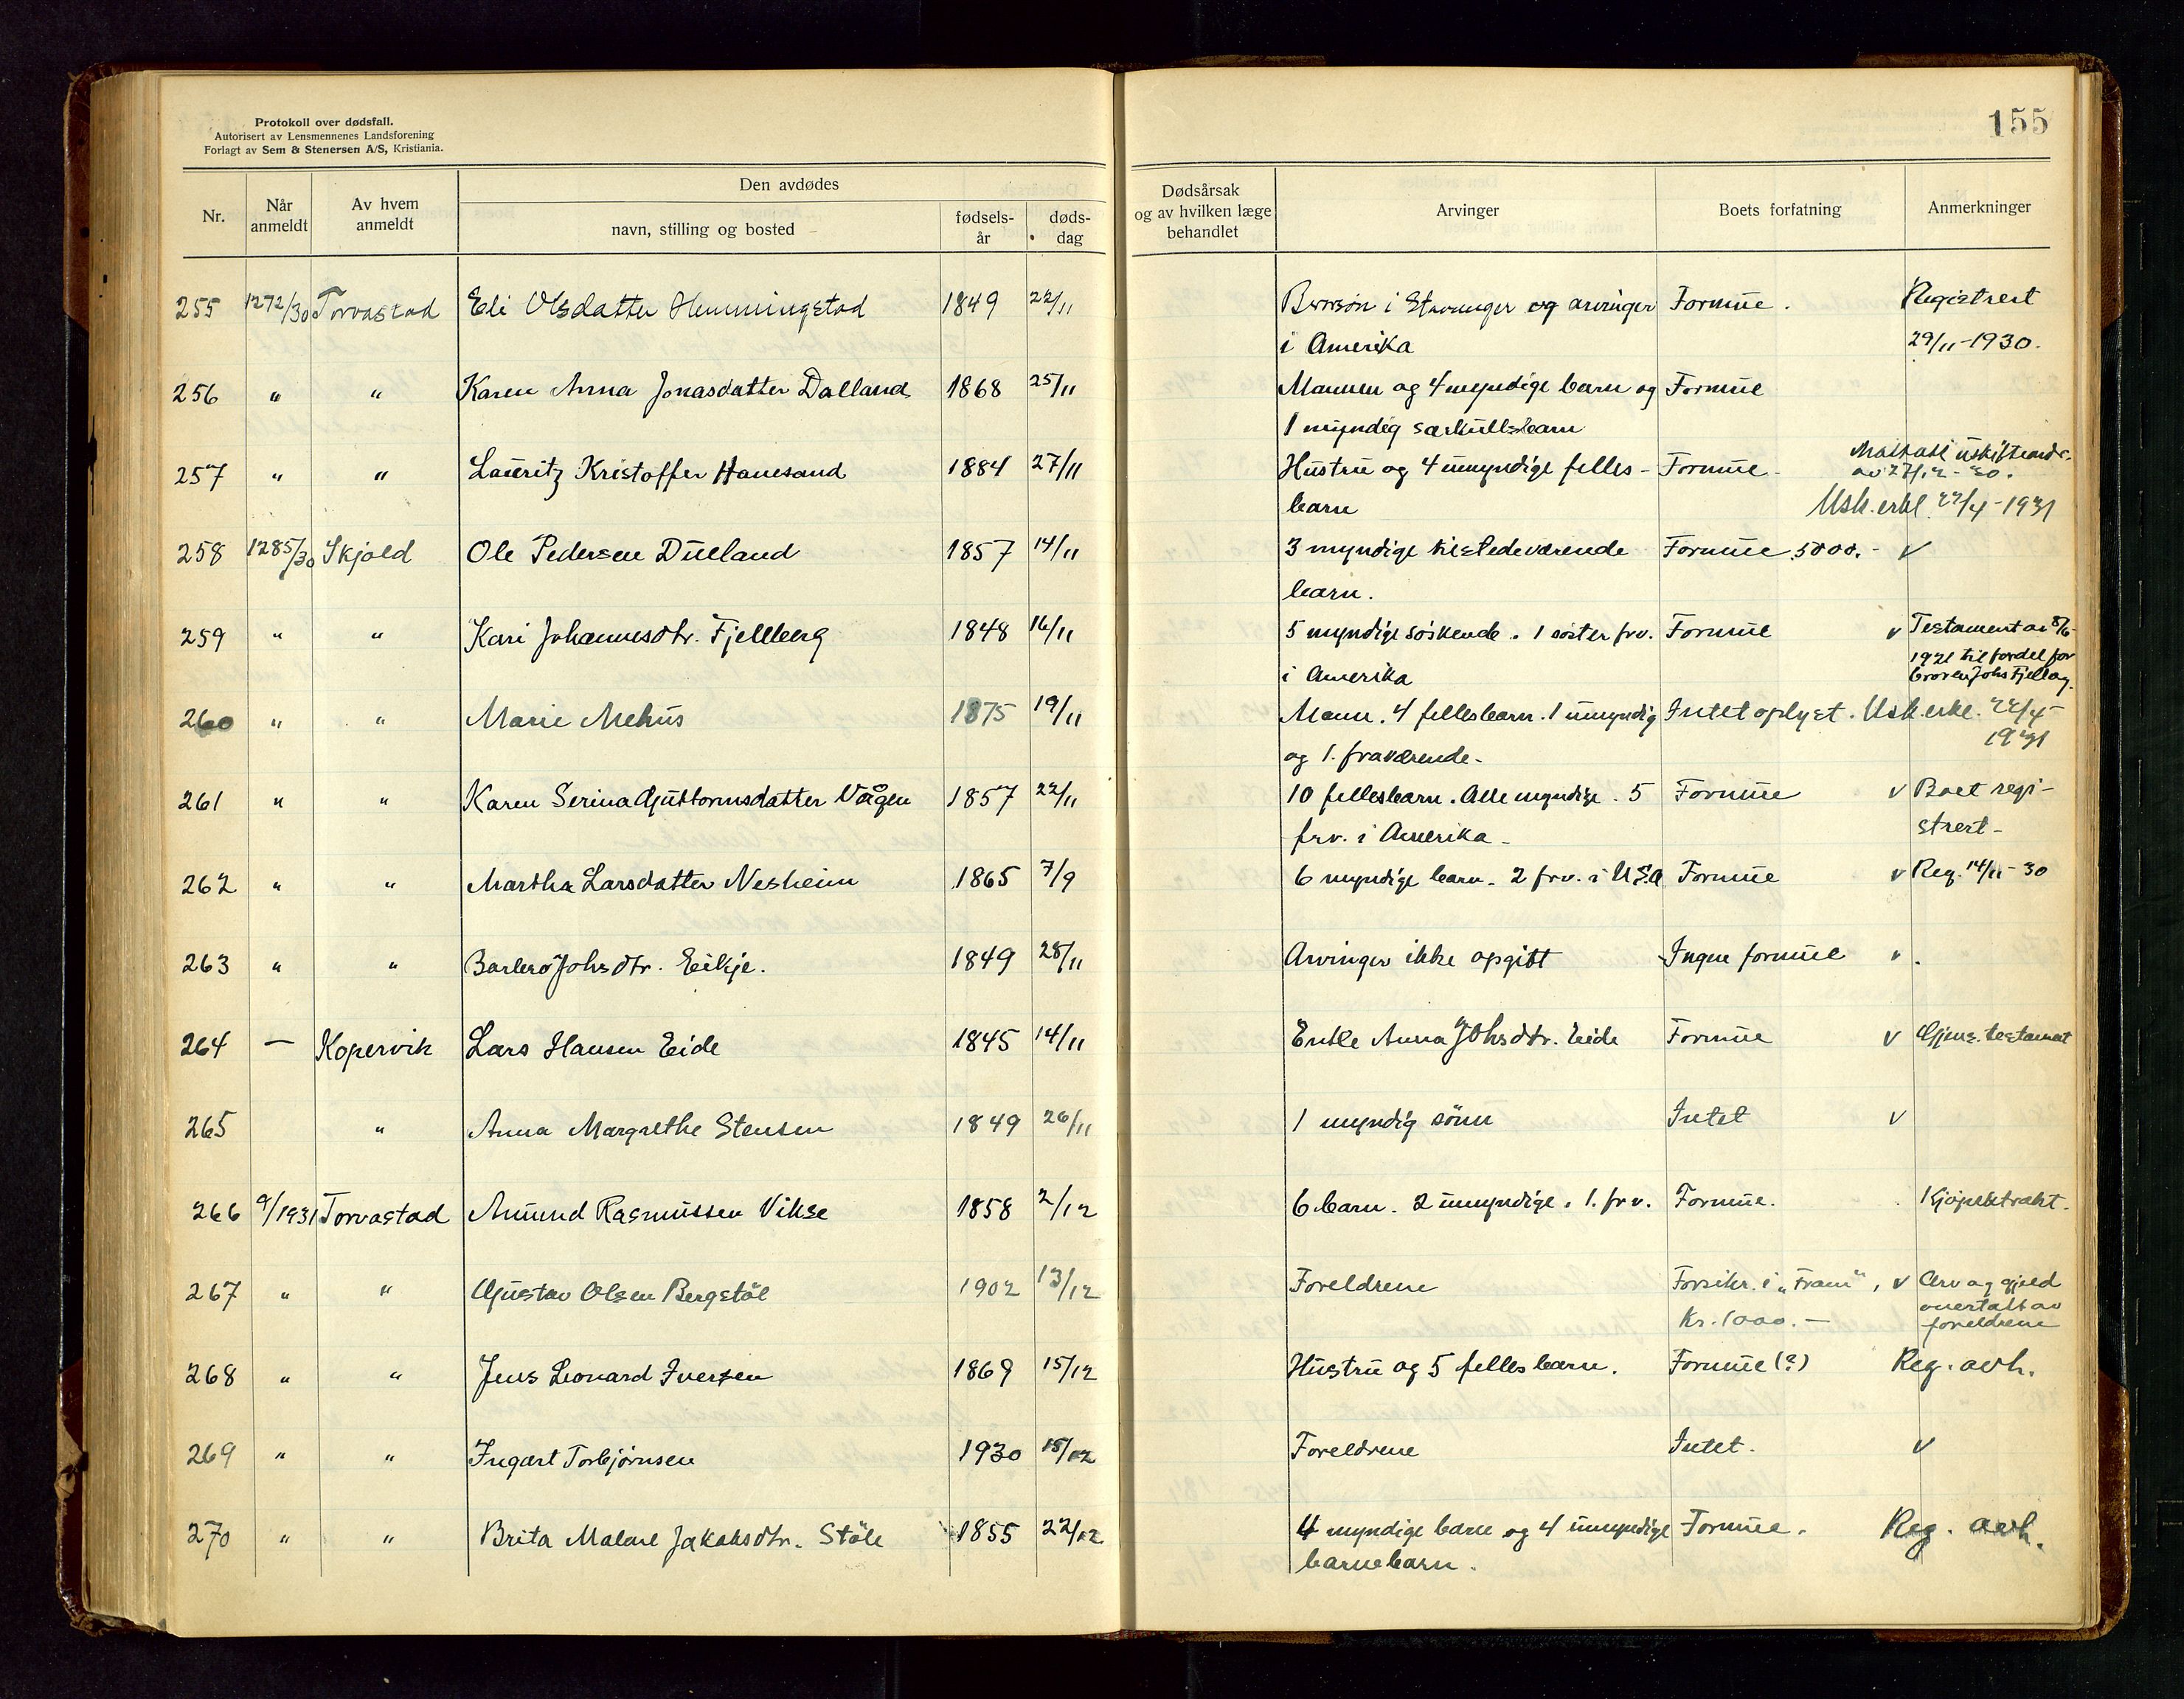 Protokoll over dødsfall.
Autorisert av Lensmennenes Landsforening
Forlagt av Sem & Stenersen A/S, Kristiania.
155
Nr.
Når anmeldt
Av hvem anmeldt
Den avdødes
navn, stilling og bosted
fødsels-år
døds-dag
Dødsårsak og av hvilken læge behandlet
Arvinger
Boets forfatning
Anmerkninger
255 1272/30 Torvastad Eli Olsdatter Hemmingstad 1849 22/11 Brorsøn i Stavanger og arvinger Formue. Registrert
i Amerika 29/11-1930.
256 " " Karen Anna Jonasdatter Dalland 1868 25/11 Mannen og 4 myndige barn og Formue
1 myndig særkullsbarn
257 " " Lauritz Kristoffer Hanesand 1884 27/11 Hustru og 4 umyndige felles- Formue.
av 27/12-30.
barn Usk.erkl. 22/4-1931
258 1285/30 Skjold Ole Pedersen Dueland 1857 14/11 3 myndige tilstedeværende Formue 5000.- v
barn.
259 " " Kari Johannesdtr. Fjellberg 1848 16/11 5 myndige søskende. 1 søster frv. Formue v Testament av 8/6-
i Amerika 1921 til fordel for
broren Johs Fjellbg.
260 " " Marie Mehus 1875 19/11 Mann. 4 fellesbarn. 1 umyndig Intet oplyst. Usk.erkl. 22/4-
og 1. fraværende. 1931
261 " " Karen Serina Guttormsdatter Vågen 1857 22/11 10 fellesbarn. Alle myndige. 5 Formue v Boet regi-
frv. i Amerika. strert-
262 " " Martha Larsdatter Nesheim 1865 7/9 6 myndige barn. 2 frv. i USA Formue v Reg. 14/11-30
263 " " Barbro Johsdtr. Eikje. 1849 28/11 Arvinger ikke opgitt Ingen formue v.
264 — Kopervik Lars Hansen Eide 1845 14/11 Enke Anna Johsdtr. Eide Formue v Gjens. testament
265 " Anna Margrethe Stensen 1849 26/11 1 myndig sönn Intet v
266 9/1931 Torvastad Amund Rasmussen Vikse 1858 2/12 6 barn. 2 umyndige. 1. frv. Formue. Kjøpektrakt.
267 " " Gustav Olsen Bergstöl 1902 13/12 Foreldrene Forsikr. i "Fram", v Arv og gjeld
Kr. 1000.— overtatt av
foreldrene
268 " " Jens Leonard Iversen 1869 15/12 Hustru og 5 felles barn. Formue (?) Reg. avh.
269 " " Ingart Torbjørnsen 1930 15/12 Foreldrene Intet. v
270 " " Brita Malene Jakobsdtr. Støle 1855 22/12 4 myndige barn og 4 umyndige Formue. Reg. avh.
barnebarn.